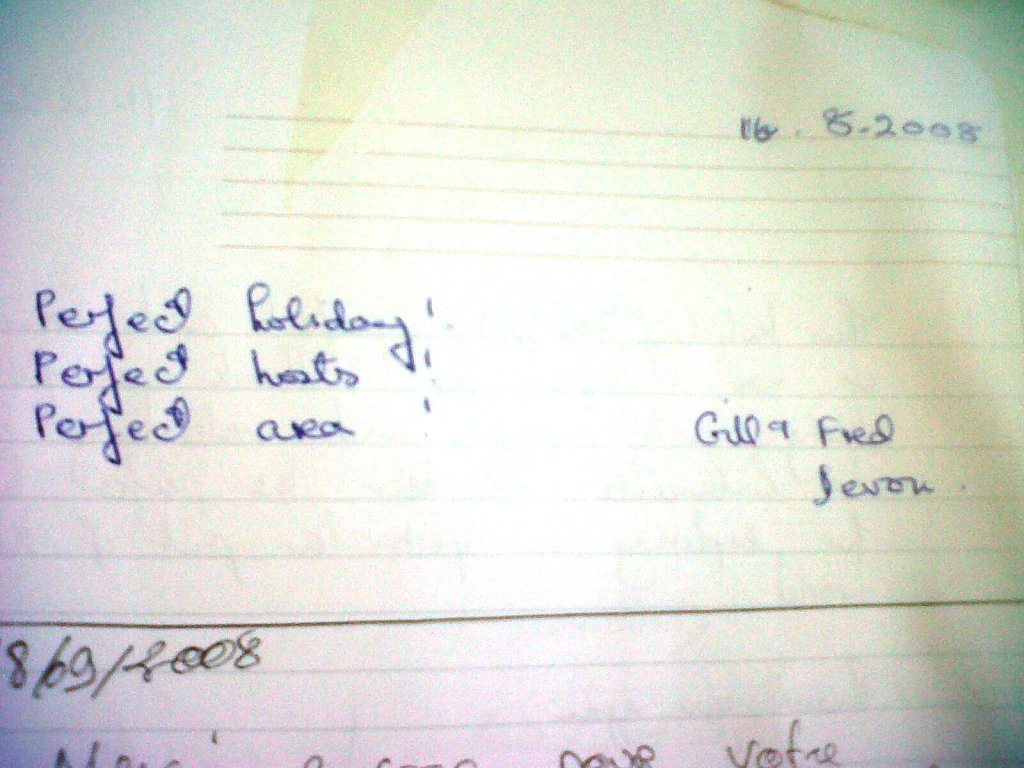 16.8.2008
Perfect holiday!
Perfect hosts!
Perfect area!
Gill & Fred
Devon.
8/09/2008
Merci pour votre